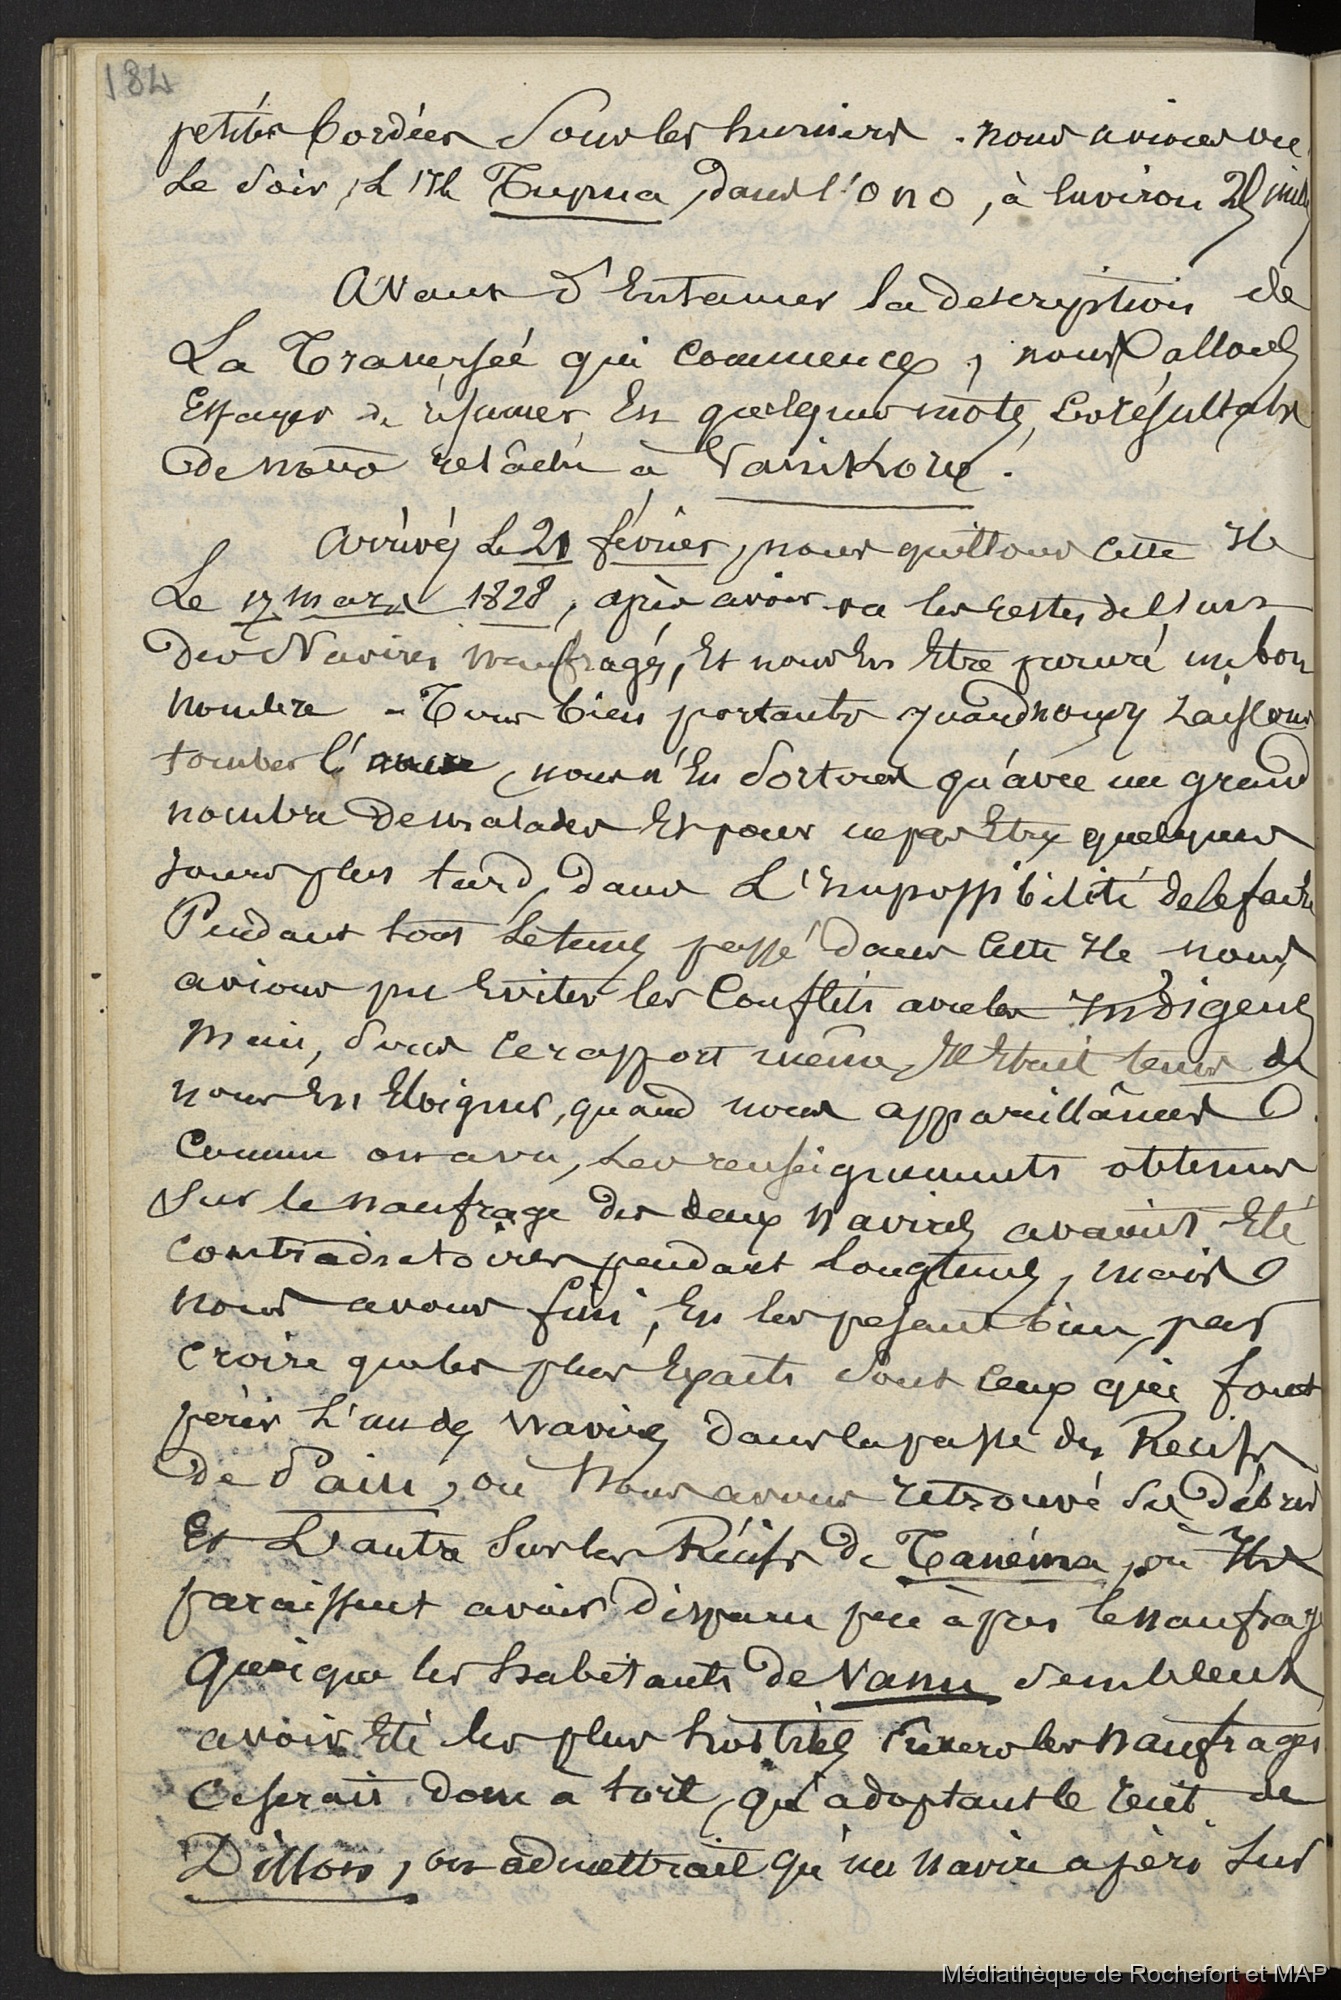 184
petites bordées sous les huniers. nous avions vu
Le soir, L'Ile Tupua, dans l'ONO, à Environ 25 milles
Avant d'Entamer la description de
La Traversée qui commence, nous allons
Essayer de résumer En quelques mots, Les résultats
De notre relâche à Vanikoro.
Arrivés Le 21 février, nous quittons cette Ile
Le 17 mars 1828, après avoir vu les restes de l'un
Des Navires naufragés, Et nous En Etre procuré un bon
nombre - Tous bien portants quand nous y laissons
tomber l'ancre, nous n'En sortons qu'avec un grand
nombre De malades Et pour ne pas Etre quelques
jours plus tard, dans L'Impossibilité de le faire
Pendant tout Le tems passé dans cette Ile nous
avions pu Eviter les Conflits avec les Indigènes
Mais, sous ce rapport même, Il Etait tems de
nous En Eloigner, quand nous appareillâmes.
Comme on a vu, Les renseignements obtenus
Sur le naufrage des deux Navires avaient Eté
contradictoires pendant longtems, mais
nous avons fini, En les pesant bien, par
croire que les plus Exacts sont ceux qui font
périr L'un des navires dans la passe des Récifs
de Païu, où Nous avons retrouvé ses Débris
Et L'autre Sur les Récifs de Tanéma, où Ils
paraissent avoir Disparu peu après le naufrage
Quoique les habitants de Vanou semblent
avoir Eté les plus hostiles Envers les Naufragés
Ce serait donc à tort, qu'adoptant le récit de
Dillon, on admettrait qu'un navire a péri Sur
Médiathèque de Rochefort et MAP